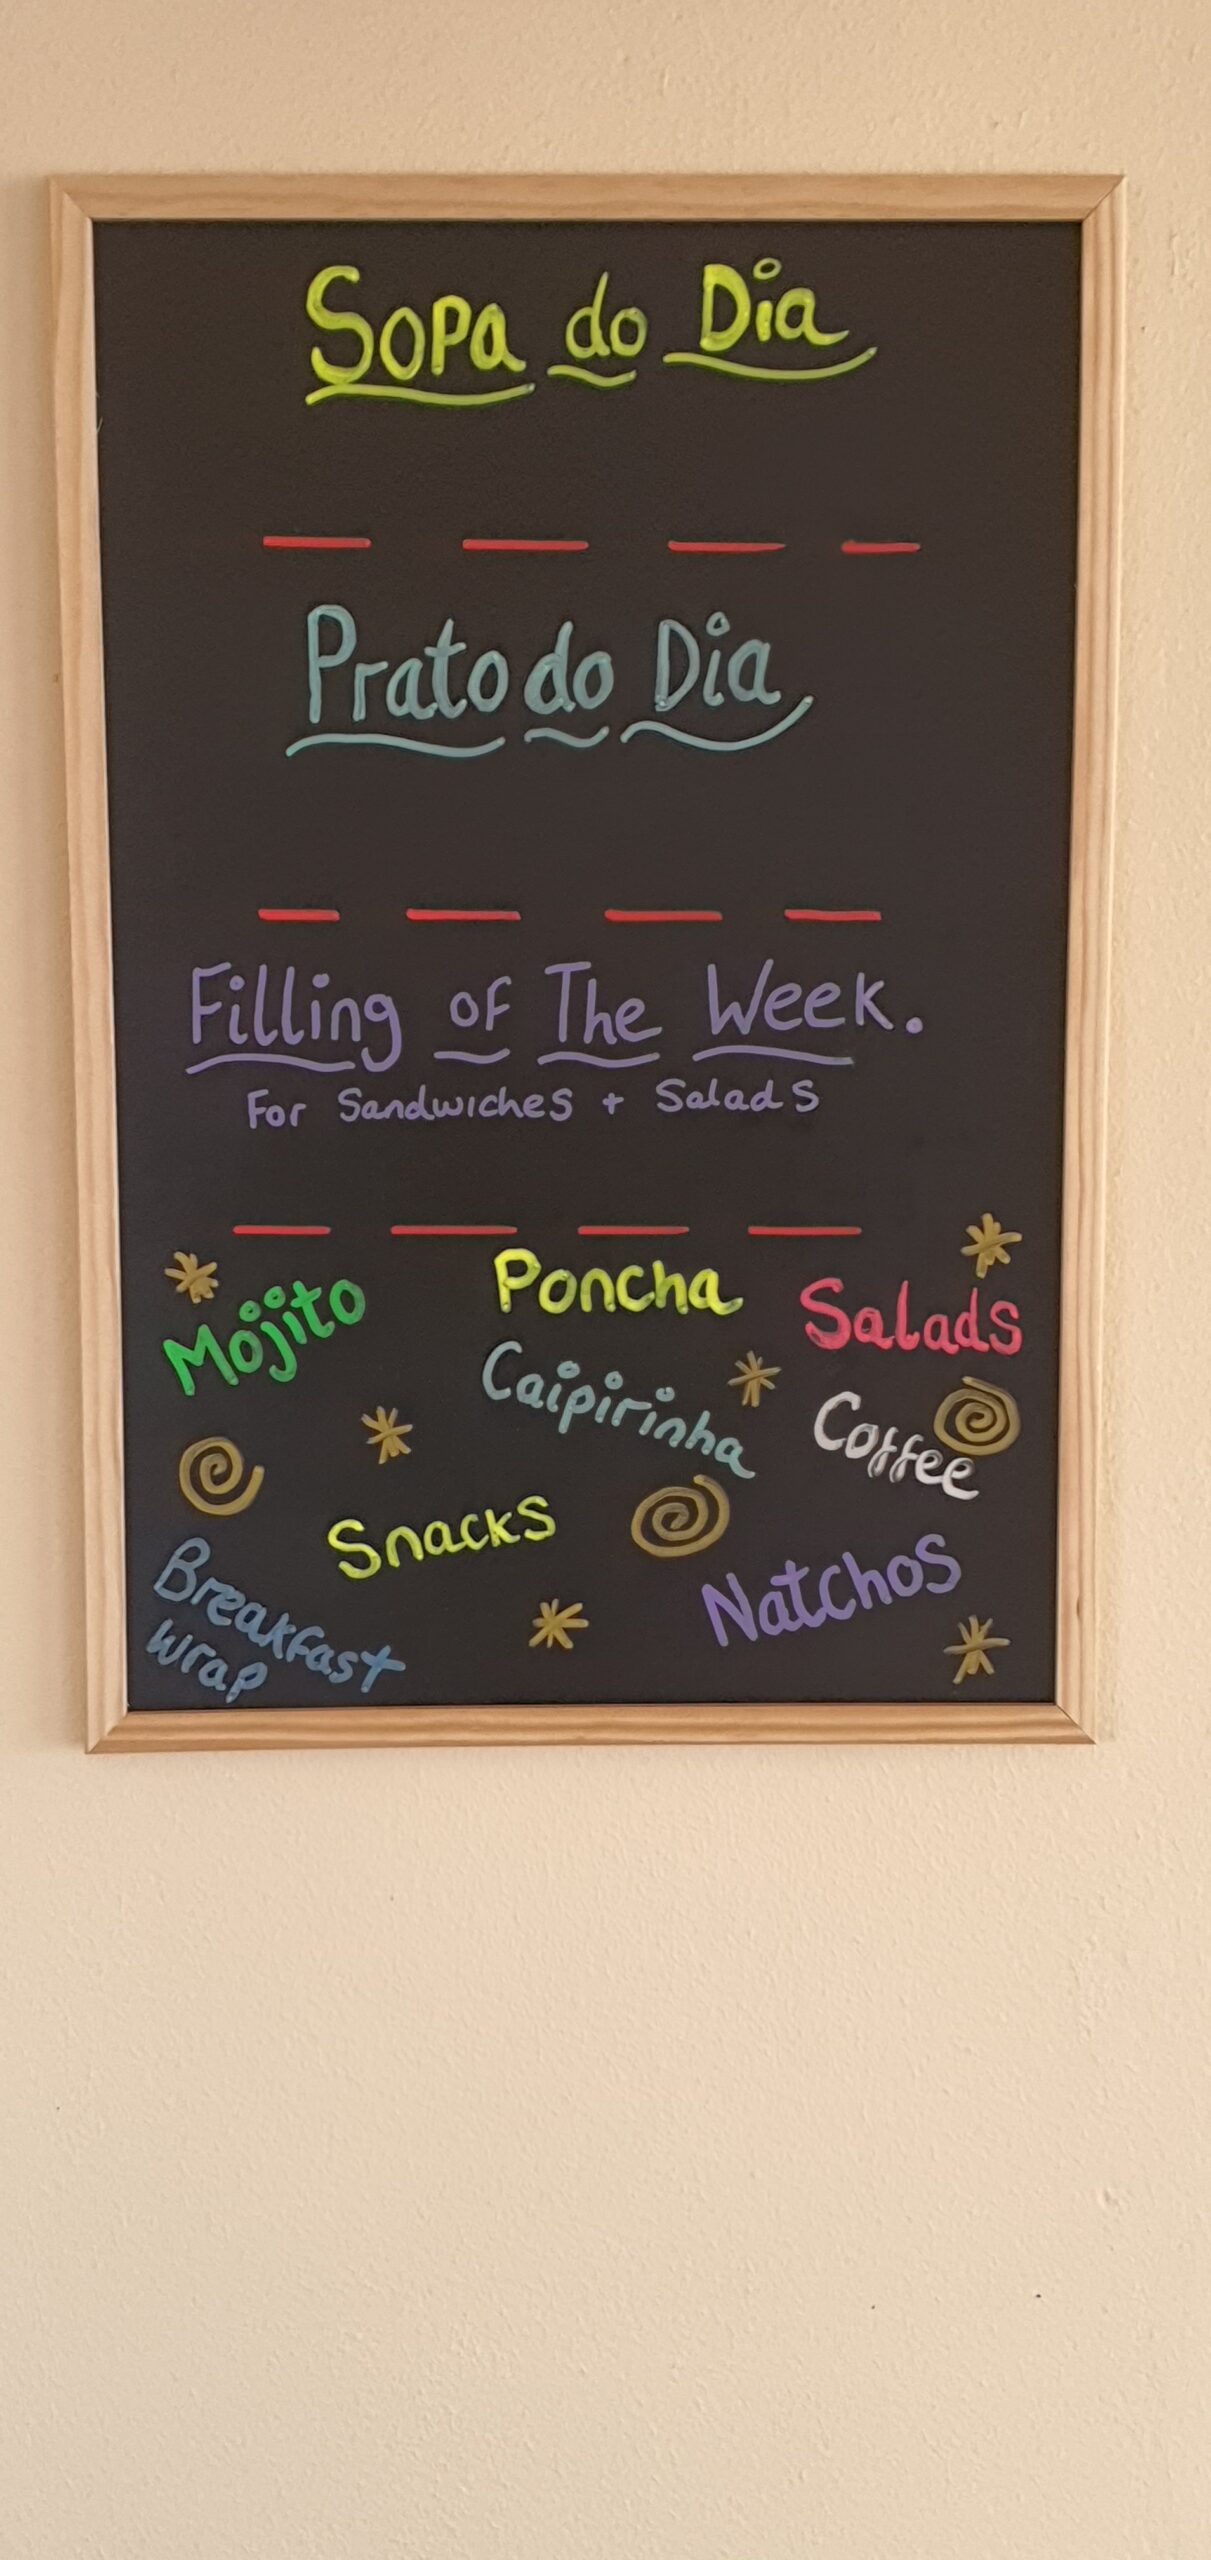 Sopa do Dia
Prato do Dia
Filling of The Week.
For Sandwiches + Salads
Mojito
Poncha
Salads
Caipirinha
Coffee
Snacks
Natchos
Breakfast
wrap